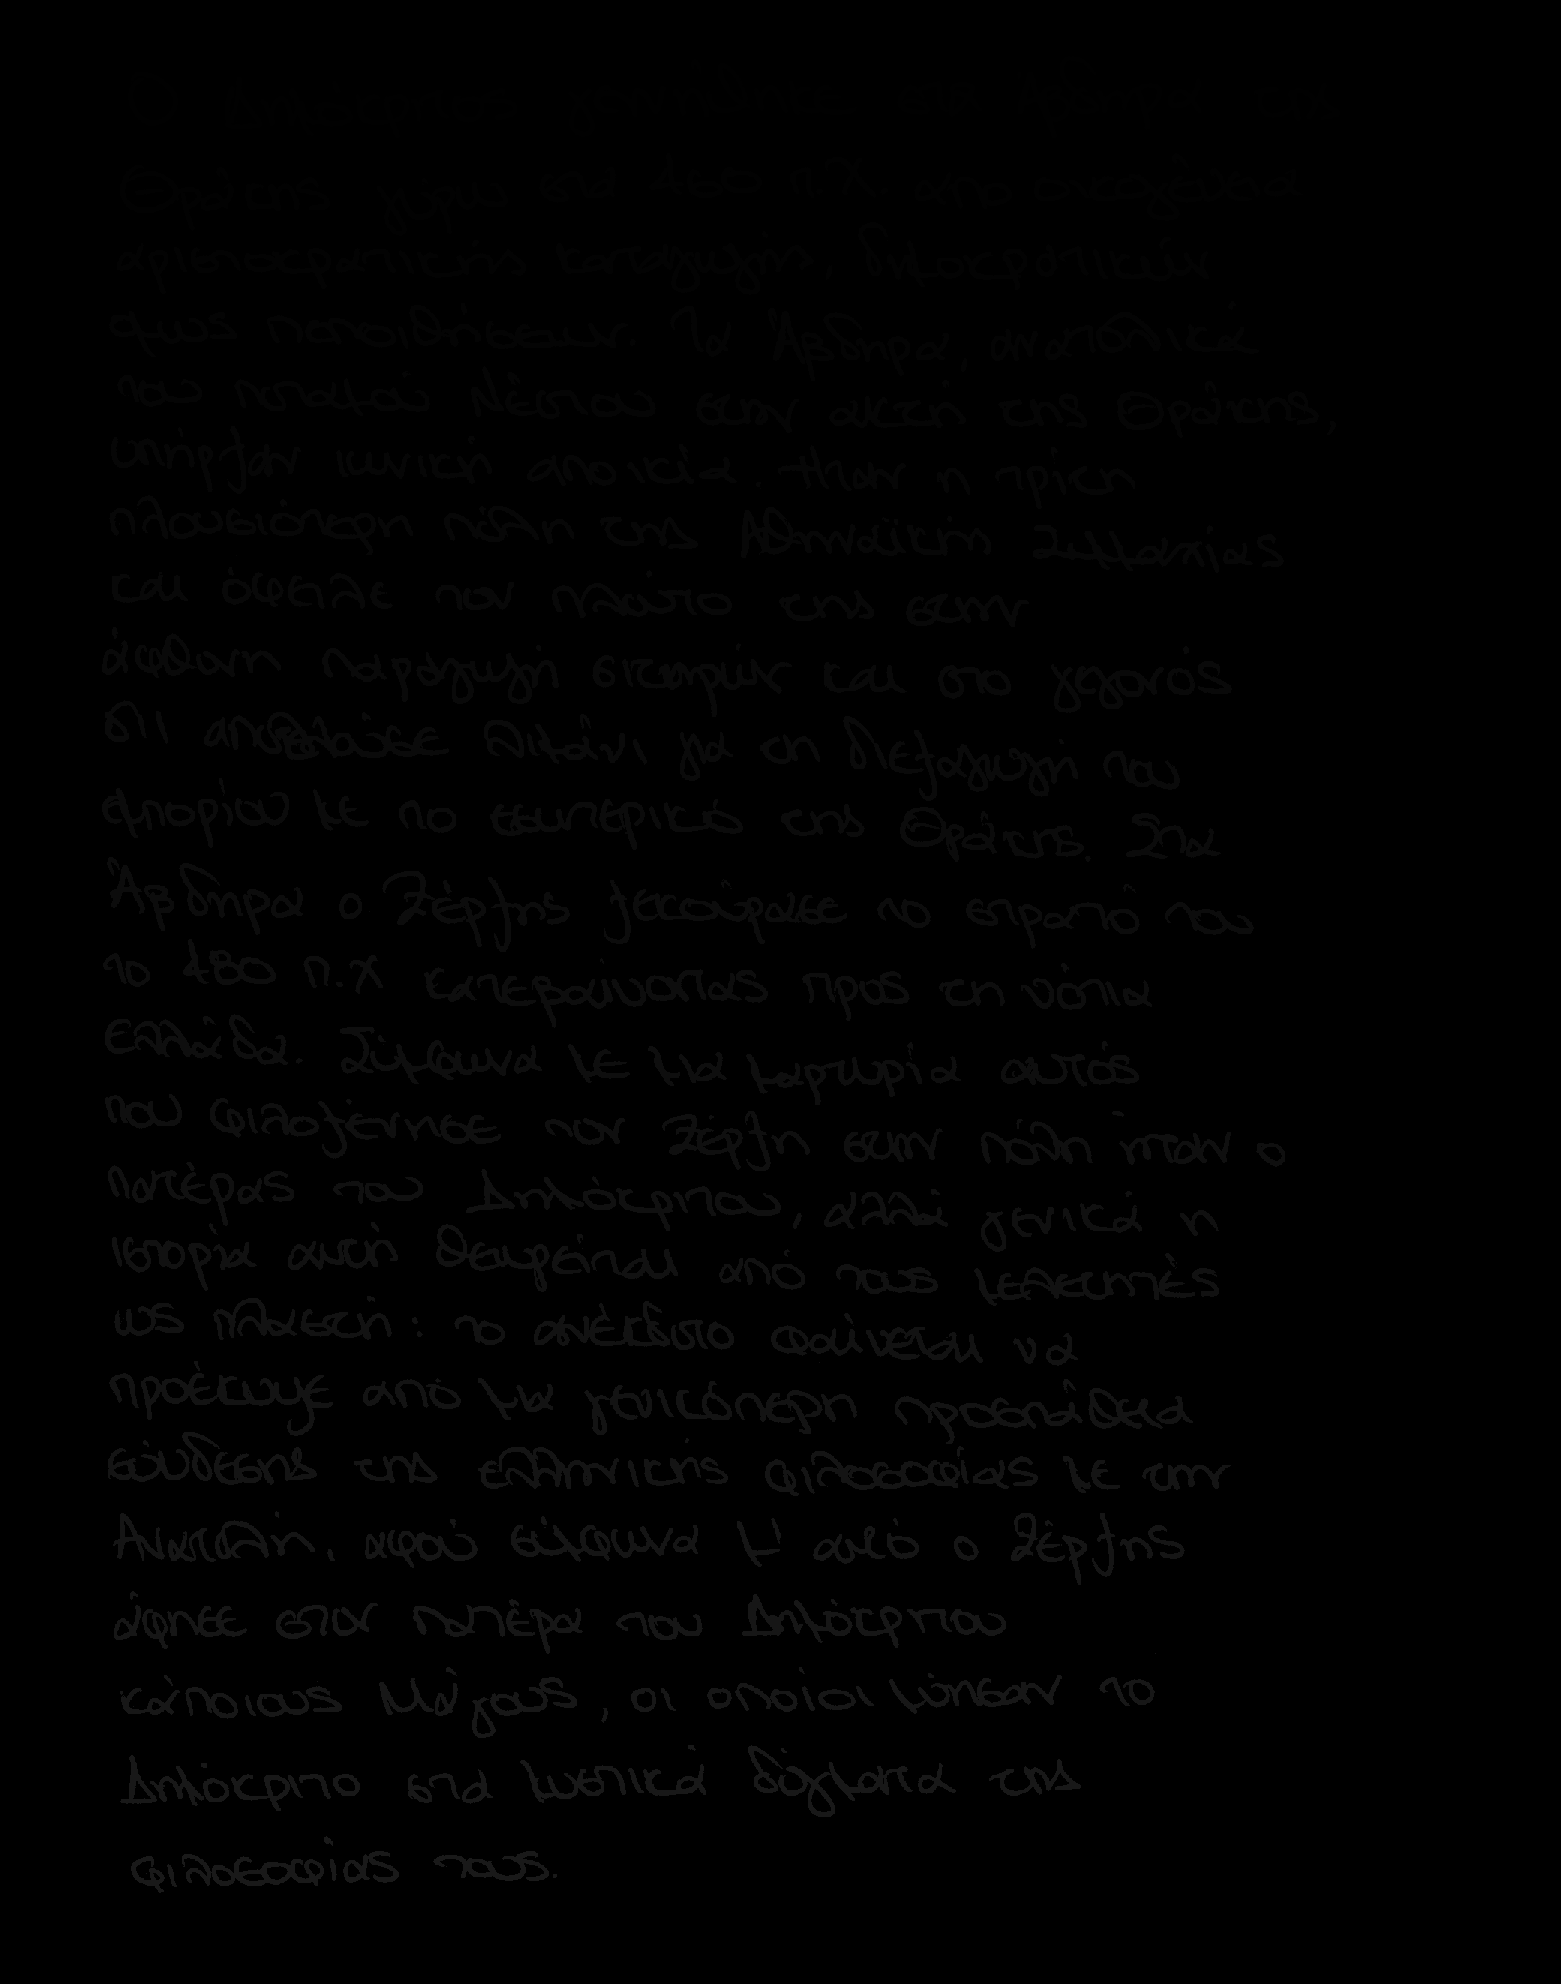 Ο Δημόκριτος γεννήθηκε στα Άβδηρα της
Θράκης γύρω στα 460 π.Χ. από οικογένεια
αριστοκρατικής καταγωγής, δημοκρατικών
όμως πεποιθήσεων. Τα Άβδηρα, ανατολικά
του ποταμού Νέστου στην ακτή της Θράκης,
υπήρξαν ιωνική αποικία. Ήταν η τρίτη
πλουσιότερη πόλη της Αθηναϊκής Συμμαχίας
και όφειλε τον πλούτο της στην
άφθονη παραγωγή σιτηρών και στο γεγονός
ότι αποτελούσε λιμάνι για τη διεξαγωγή του
εμπορίου με το εσωτερικό της Θράκης. Στα
Άβδηρα ο Ξέρξης ξεκούρασε το στρατό του
το 480 π.Χ κατεβαίνοντας προς τη νότια
Ελλάδα. Σύμφωνα με μια μαρτυρία αυτός
που φιλοξένησε τον Ξέρξη στην πόλη ήταν ο
πατέρας του Δημόκριτου, αλλά γενικά η
ιστορία αυτή θεωρείται από τους μελετητές
ως πλαστή: το ανέκδοτο φαίνεται να
προέκυψε από μια γενικότερη προσπάθεια
σύνδεσης της ελληνικής φιλοσοφίας με την
Ανατολή, αφού σύμφωνα μ' αυτό ο Ξέρξης
άφησε στον πατέρα του Δημόκριτου
κάποιους Μάγους, οι οποίοι μύησαν το
Δημόκριτο στα μυστικά δόγματα της
φιλοσοφίας τους.